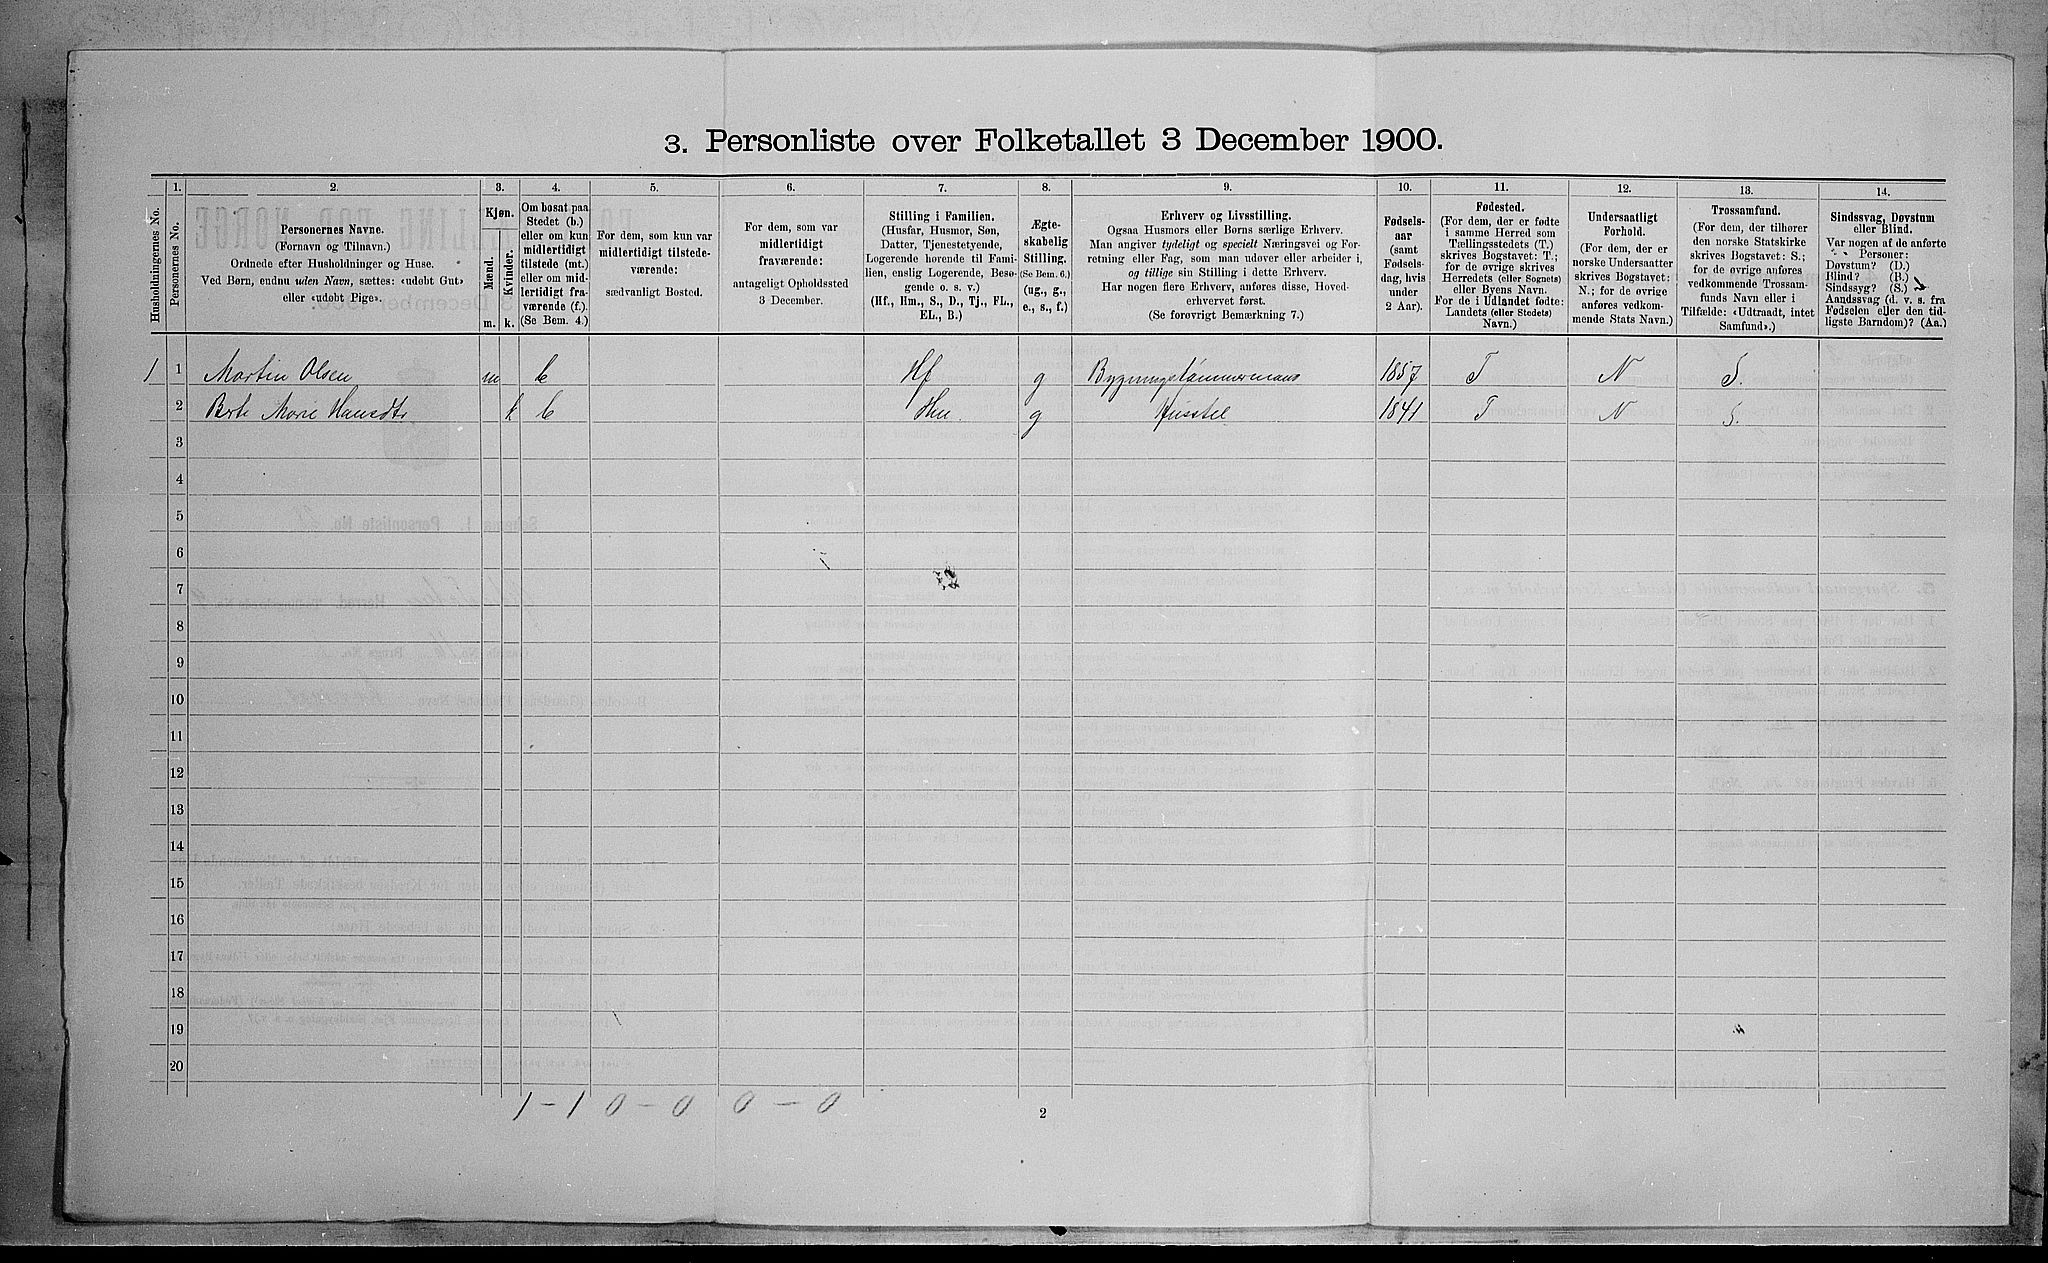 3. Personliste over Folketallet 3 December 1900.
1. 2. 3. 4. 5. 6. 7. 8. 9. 10. 11. 12. 13. 14.
Husholdningernes No.
Personernes No.
Personernes Navne.
(Fornavn og Tilnavn.)
Ordnede efter Husholdninger og Huse.
Ved Børn, endnu uden Navn, sættes: «udøbt Gut»
eller «udøbt Pige».
Kjøn.
Mænd.
Kvinder.
m. k.
Om bosat paa
Stedet (b.)
eller om kun
midlertidigt
tilstede (mt.)
eller om mid-
lertidigt fra-
værende (f.)
(Se Bem. 4.)
For dem, som kun var
midlertidigt tilstede-
værende:
sædvanligt Bosted.
For dem, som var
midlertidigt
fraværende:
antageligt Opholdssted
3 December.
Stilling i Familien.
(Husfar, Husmor, Søn,
Datter, Tjenestetyende,
Logerende hørende til Fami-
lien, enslig Logerende, Besø-
gende o. s. v.)
(Hf., Hm., S., D., Tj., FL.,
EL., B.)
Ægte-
skabelig
Stilling.
(Se Bem. 6.)
(ug., g.,
e., s., f.)
Erhverv og Livsstilling.
Ogsaa Husmors eller Børns særlige Erhverv.
Man angiver tydeligt og specielt Næringsvei og For-
retning eller Fag, som man udøver eller arbeider i,
og tillige sin Stilling i dette Erhverv.
Har nogen flere Erhverv, anføres disse, Hoved-
erhvervet først.
(Se forøvrigt Bemærkning 7.)
Fødsels-
aar
(samt
Fødsels-
dag, hvis
under
2 Aar).
Fødested.
(For dem, der er fødte
i samme Herred som
Tællingsstedets (T.)
skrives Bogstavet: T.;
for de øvrige skrives
Herredets (eller Sognets)
eller Byens Navn.
For de i Udlandet fødte:
Landets (eller Stedets)
Navn.)
Undersaatligt
Forhold.
(For dem, der er
norske Undersaatter
skrives Bogstavet:
N.; for de øvrige
anføres vedkom-
mende Stats Navn.)
Trossamfund.
(For dem, der tilhører
den norske Statskirke
skrives Bogstavet: S.;
for de øvrige anføres
vedkommende Trossam-
funds Navn eller i
Tilfælde: «Udtraadt, intet
Samfund».)
Sindssvag, Døvstum
eller Blind.
Var nogen af de anførte
Personer:
Døvstum? (D.)
Blind? (B.)
Sindssyg? (S.)
Aandssvag (d. v. s. fra
Fødselen eller den tid-
ligste Barndom)? (Aa.)
1 1 Martin Olsen m b Hf g Bygningstømmermand 1857 T N S.
2 Berte Marie Hansdtr k b Hm. g Husstel 1841 T N S.
3
4
5
6
7
8
9
10
11
12
13
14
15
16
17
18
19
20
1 – 1 0 – 0 0 – 0
2